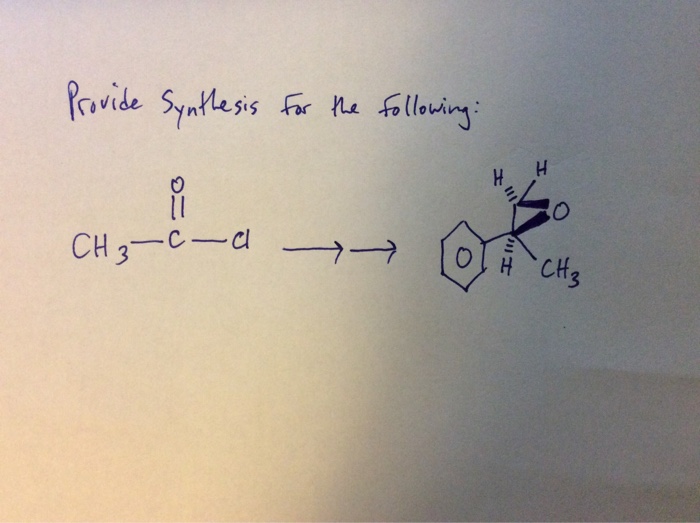 Provide Synthesis for the following:
O
CH3-C-Cl
H H
O
H CH3